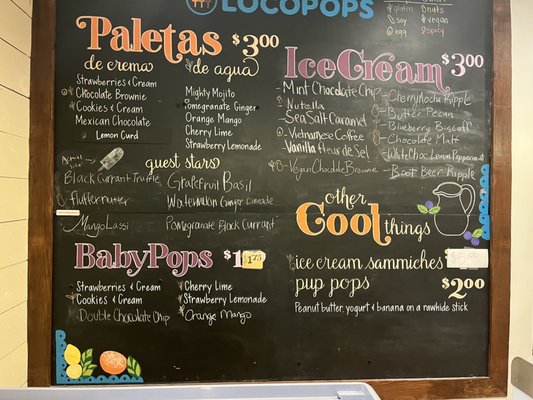 LOCOPOPS
gluten nuts
soy vegan
egg
Paletas $3.00
de crema
de agua
Strawberries & Cream
Chocolate Brownie
Cookies & Cream
Mexican Chocolate
Lemon Curd
Mighty Mojito
Pomegranate Ginger
Orange Mango
Cherry Lime
Strawberry Lemonade
guest stars
Black Currant Truffle
Fluffernutter
Mango Lassi
Grapefruit Basil
Watermelon Ginger Limeade
Pomegranate Black Currant
BabyPops $1.75
Strawberries & Cream
Cookies & Cream
Double Chocolate Chip
Cherry Lime
Strawberry Lemonade
Orange Mango
IceCream $3.00
Mint Chocolate Chip
Nutella
Sea Salt Caramel
Vietnamese Coffee
Vanilla Fleur de Sel
Vegan Chocolate Brownie
Cherry Mocha Ripple
Butter Pecan
Blueberry Biscoff
Chocolate Malt
White Choc Lemon Peppermint
Root Beer Ripple
other
Cool things
ice cream sammiches
pup pops $2.00
Peanut butter, yogurt & banana on a rawhide stick